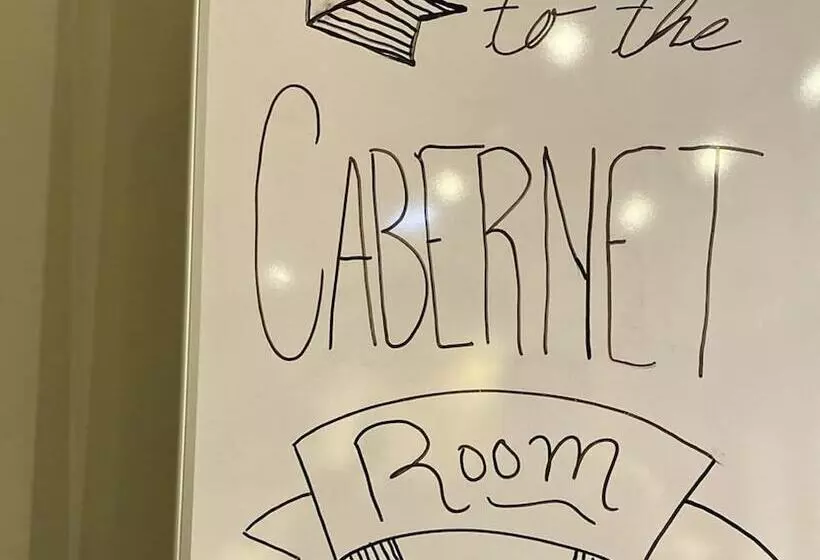 to the
CABERNET
Room